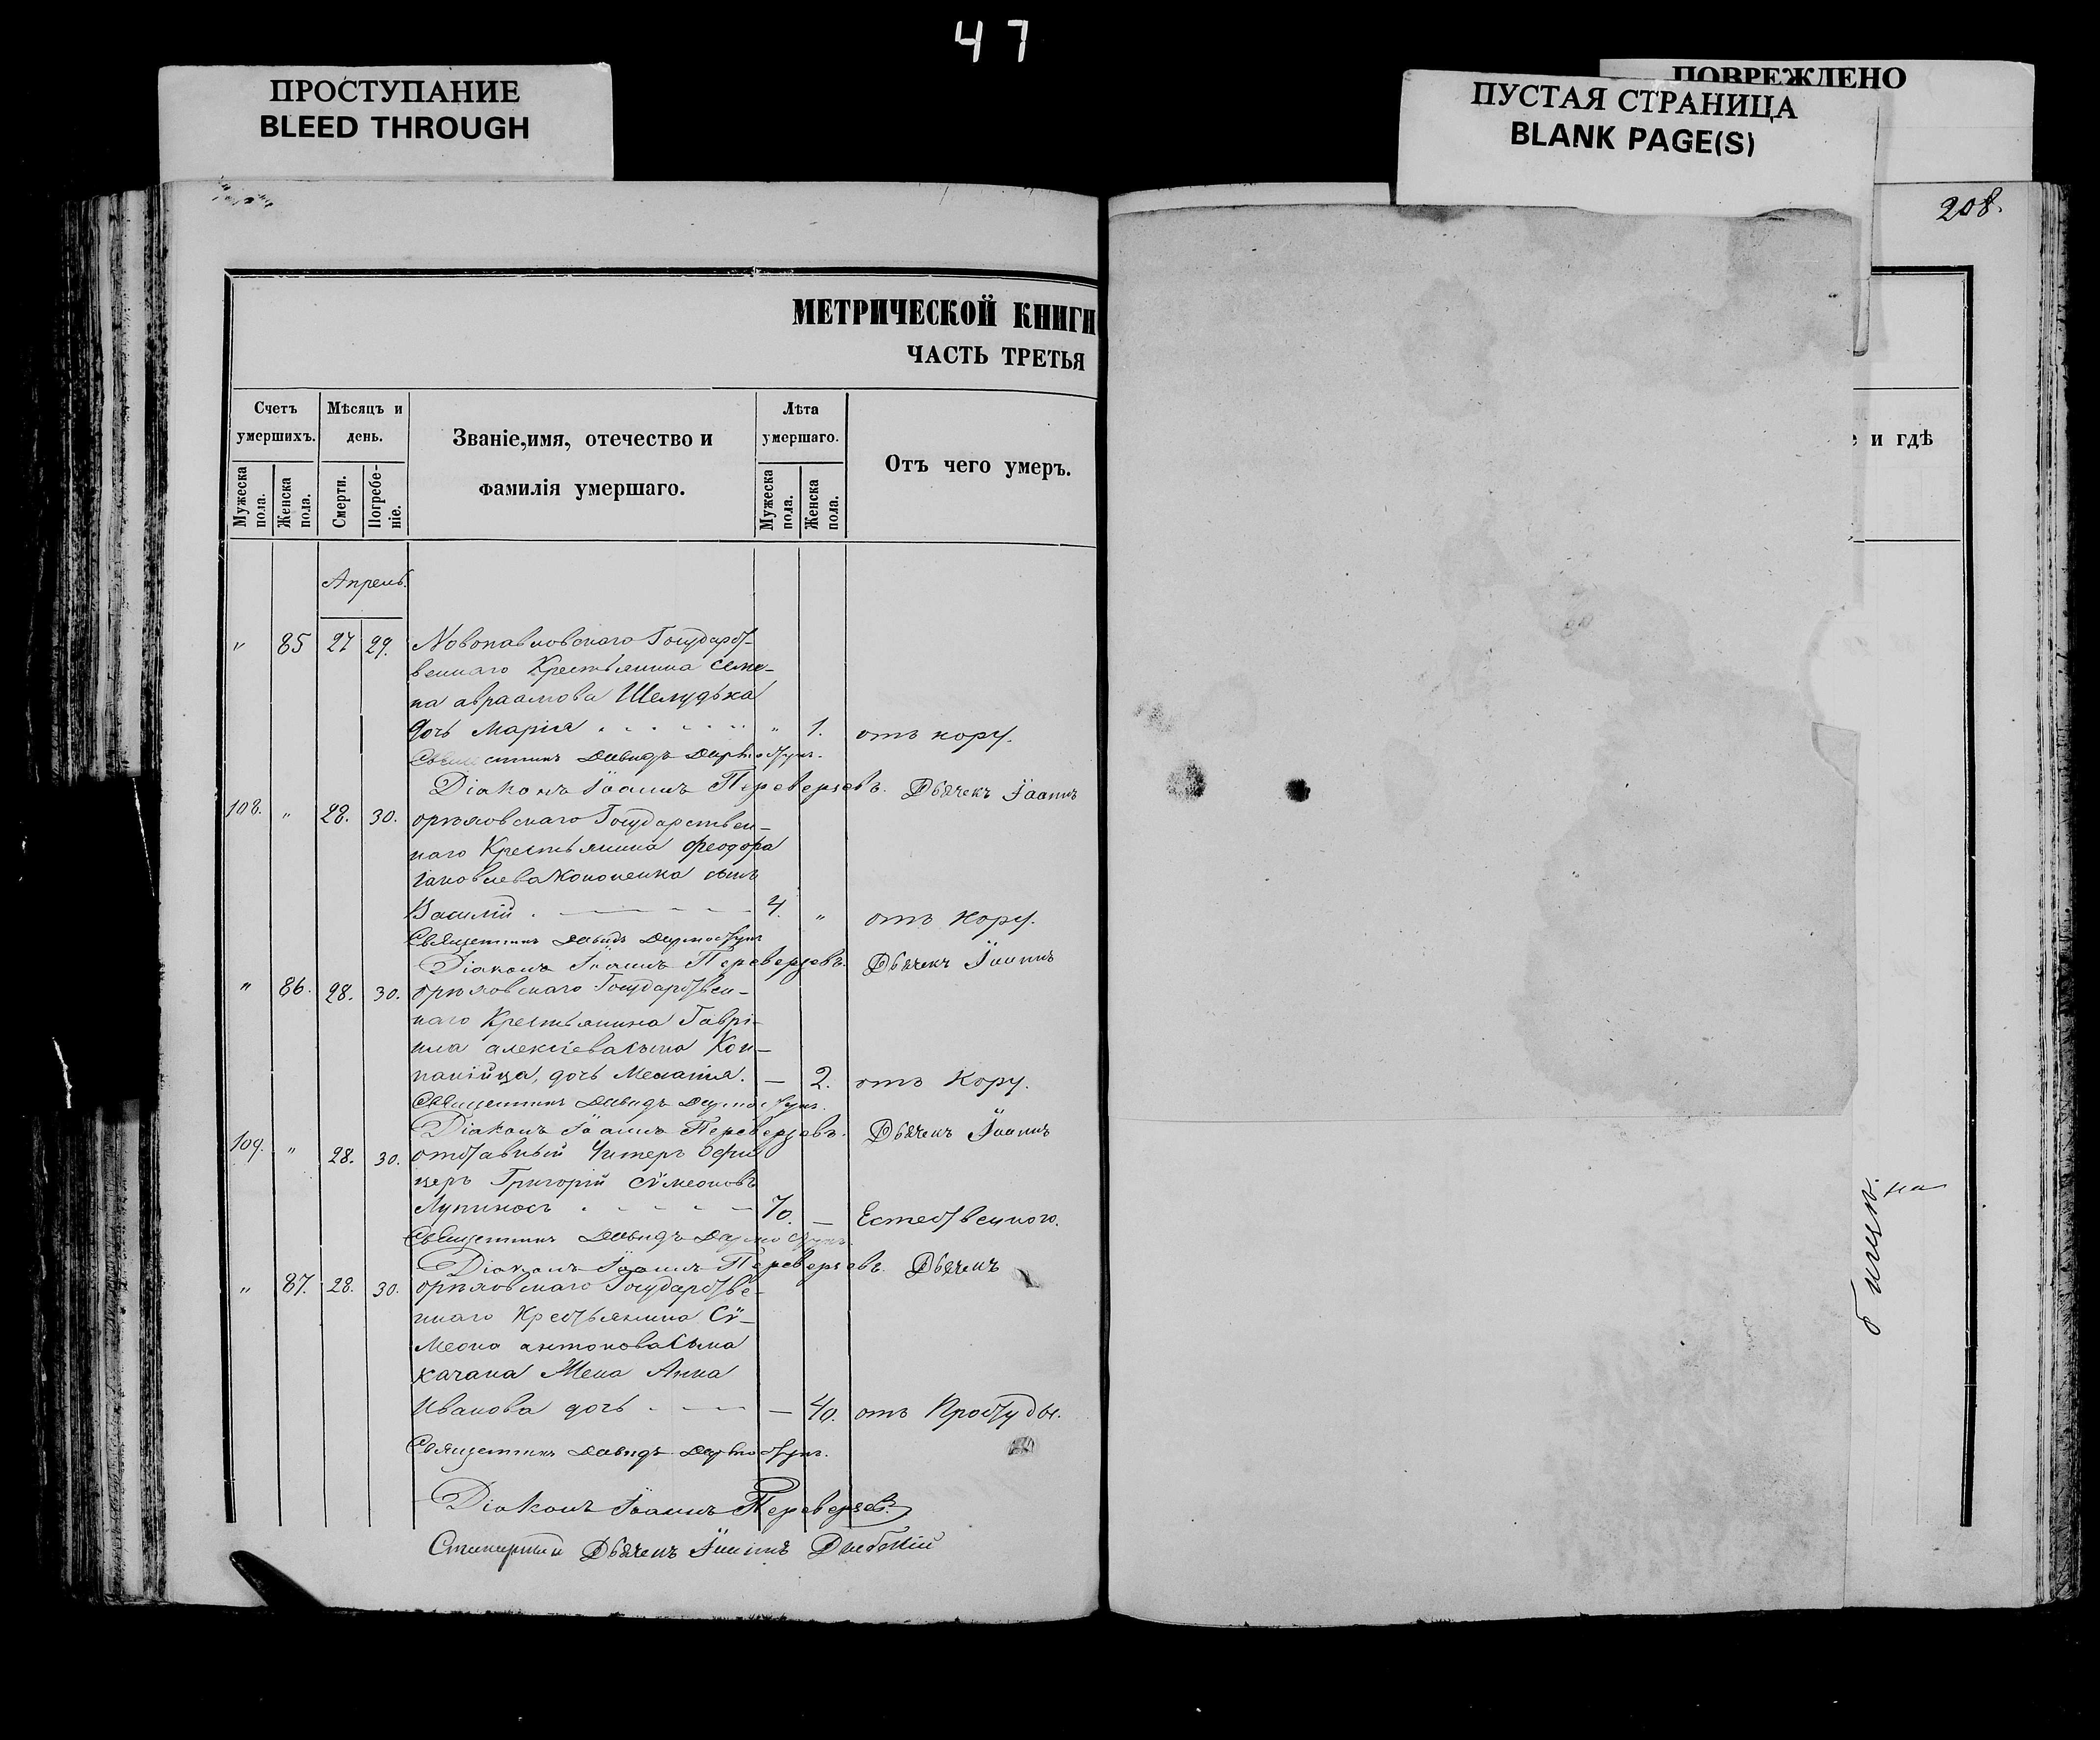 47
ПРОСТУПАНИЕ
BLEED THROUGH
ПОВРЕЖДЕНО
ПУСТАЯ СТРАНИЦА
BLANK PAGE(S)
208.
МЕТРИЧЕСКОЙ КНИГИ
ЧАСТЬ ТРЕТЬЯ
Счетъ умершихъ.
Мѣсяцъ и день.
Званіе, имя, отечество и фамилія умершаго.
Лѣта умершаго.
Отъ чего умеръ.
Мужеска пола.
Женска пола.
Смерти.
Погребеніе.
Мужеска пола.
Женска пола.
е и гдѣ
Апрель.
" 85 27 29. Новопавловскаго Государст-
веннаго Крестьянина Семе-
на авраамова Шелудька
дочь Марія " 1. отъ кору.
Священникъ Давидъ
Діаконъ Іоаннъ Переверзевъ. Дьячекъ Іоаннъ
108. " 28. 30. орѣховскаго Государствен-
наго Крестьянина Феодора
іаковлева Кононенка сынъ
Василій 4. " отъ Кору.
Священникъ Давидъ
Діаконъ Іоаннъ Переверзевъ. Дьячекъ Іоаннъ
" 86. 28. 30. орѣховскаго Государствен-
наго Крестьянина Гаврі-
ила алексіева сына Кон-
панійца, дочь Меланія. — 2. отъ Кору.
Священникъ Давидъ
Діаконъ Іоаннъ Переверзевъ. Дьячекъ Іоаннъ
109. " 28. 30. отставный Унтеръ Офи
церъ Григорій Сѵмеоновъ
Лупиносъ 70. — Естественного.
Священникъ Давидъ
Діаконъ Іоаннъ Переверзевъ. Дьячекъ
" 87. 28. 30. орѣховскаго Государстве-
ннаго Крестьянина Сѵ-
меона антонова сына
качана Жена Анна
Иванова дочь — 40. отъ Простуды.
Священникъ Давидъ
Діаконъ Іоаннъ Переверзевъ.
Дьячекъ Іоаннъ